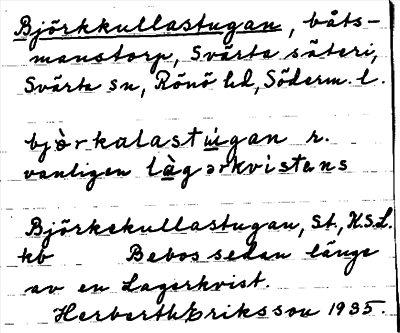 Björkkullastugan, båts-
manstorp, Svärta säteri,
Svärta sn, Rönö hd, Söderm. l.
bjò̤rkalastṳ́gan r.
vanligen là̤gərkvistəns
Björkekullastugan, St., K.S.L.
kb Bebos sedan länge
av en Lagerkvist.
Herberth Eriksson 1935.